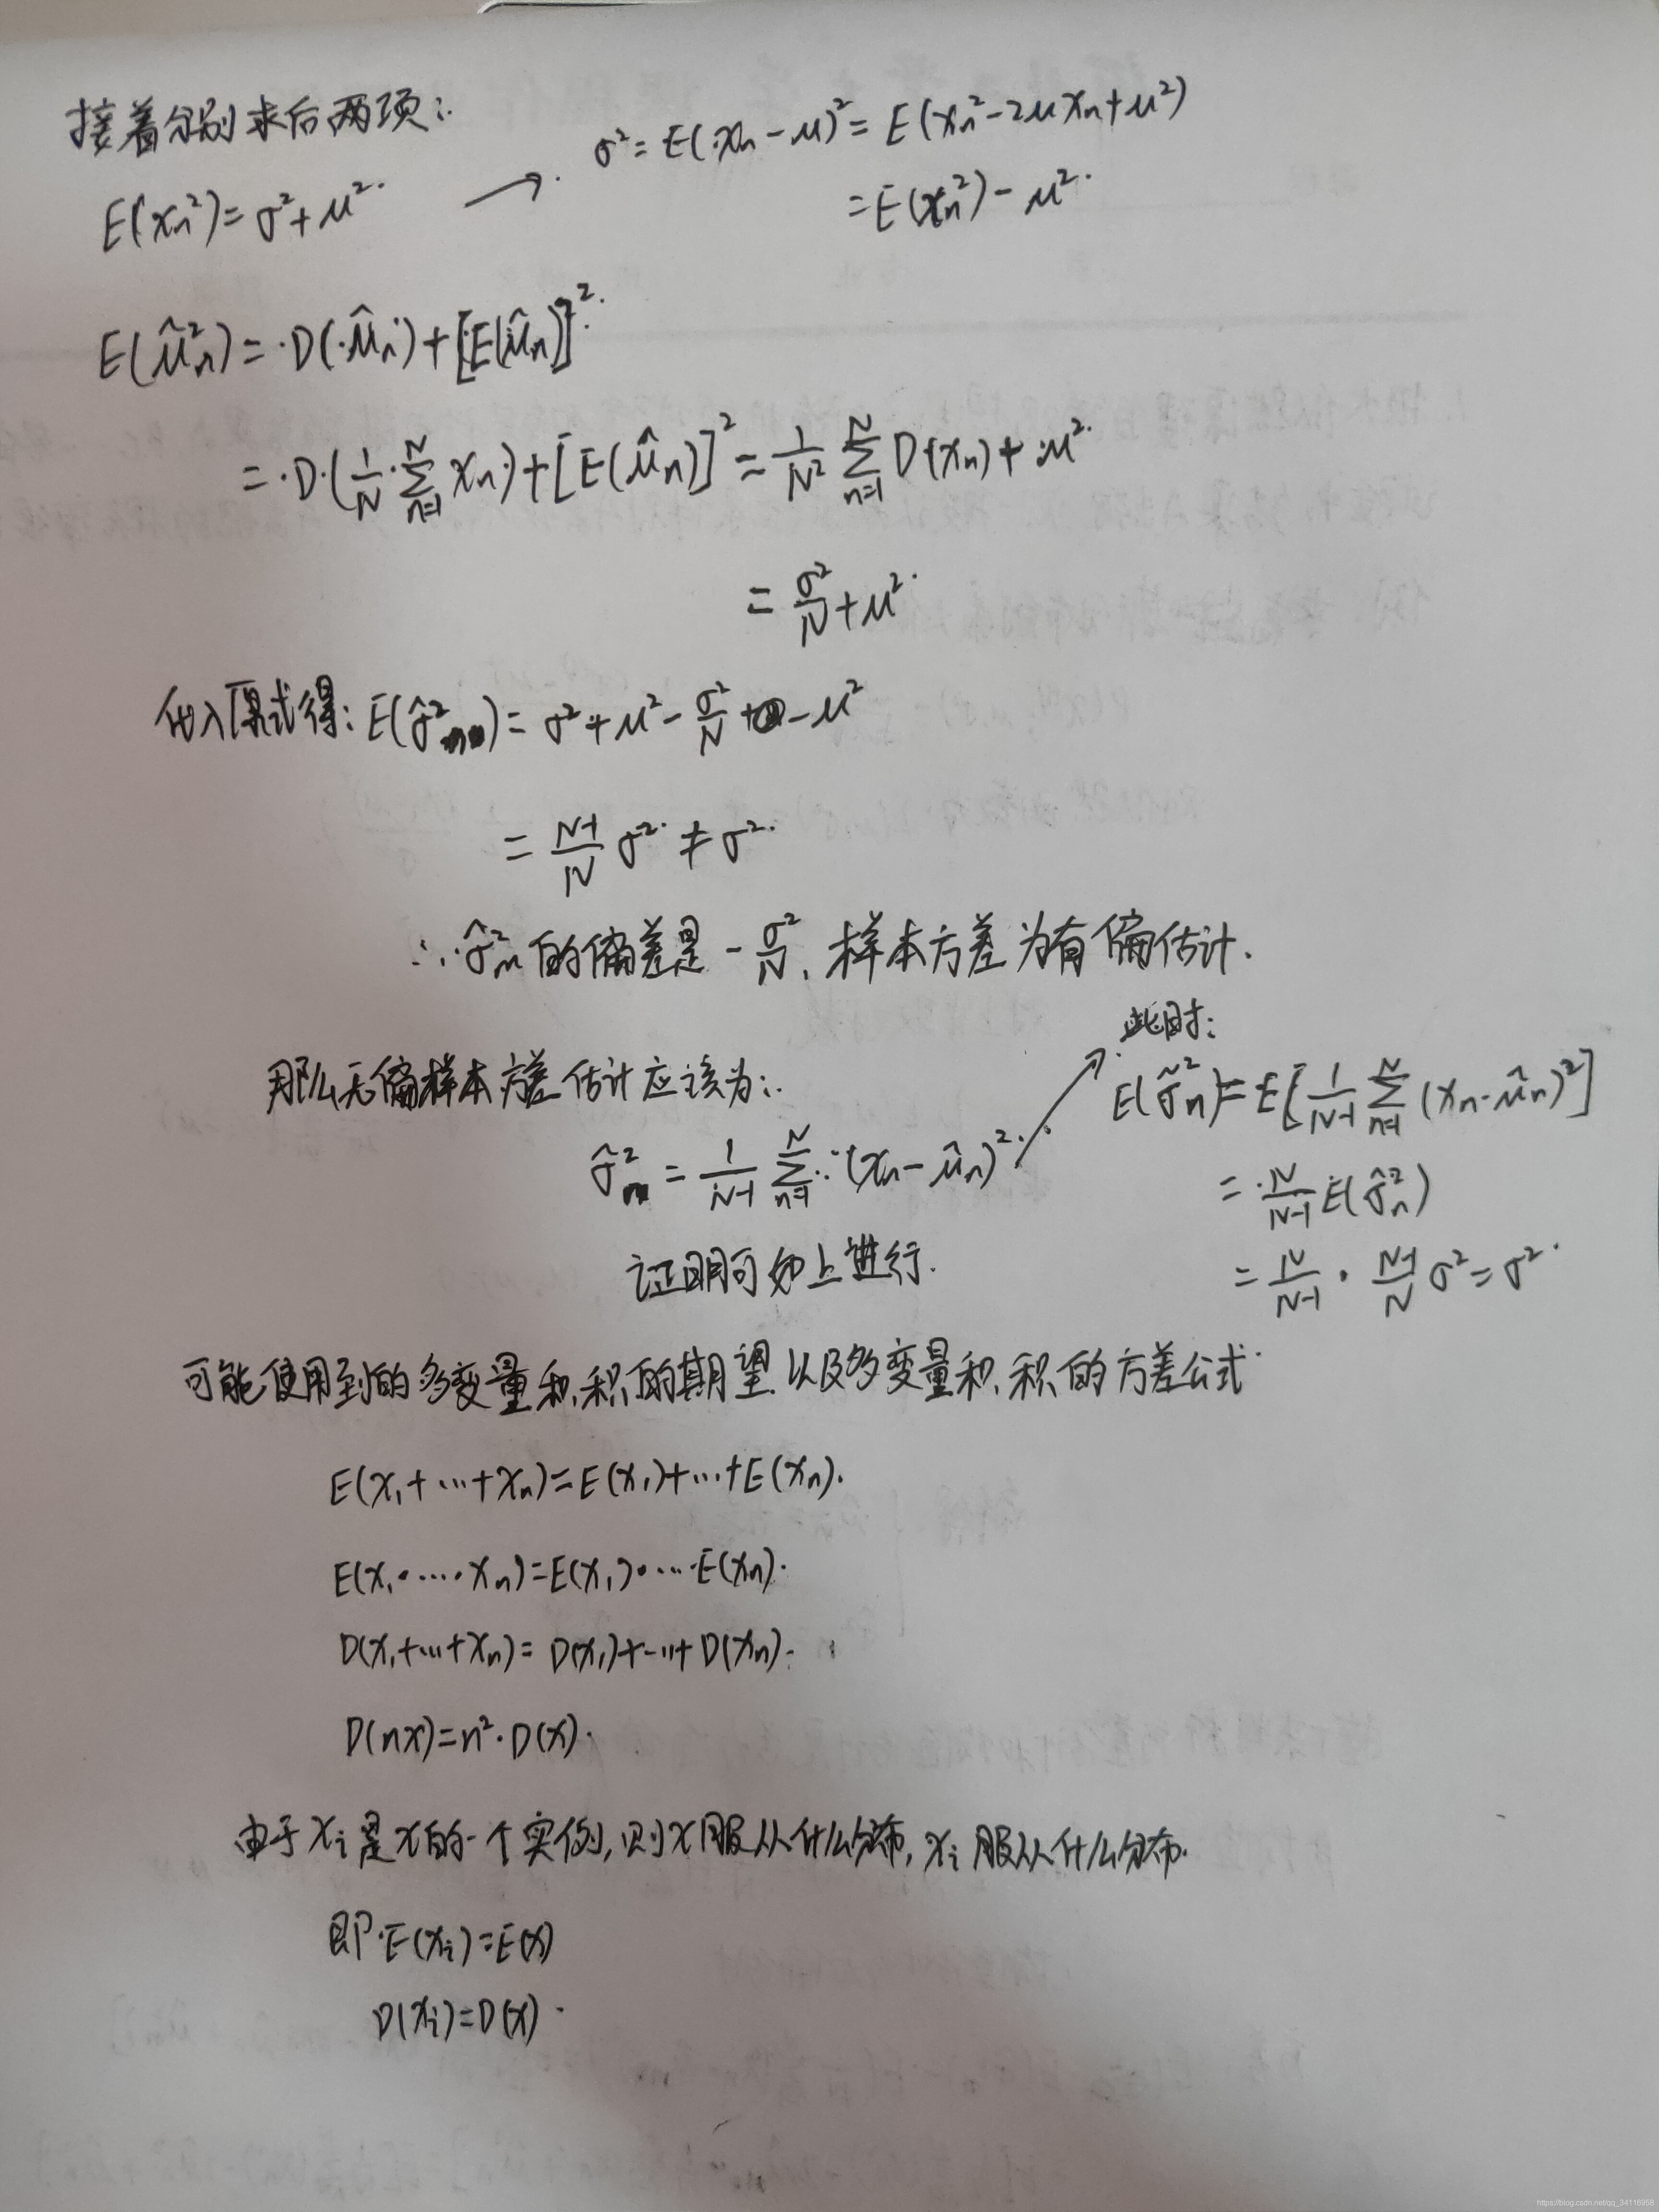 接着分别求后两项:
E(xₙ²)=σ²+μ² → σ²=E(xₙ-μ)²=E(xₙ²-2μxₙ+μ²)
=E(xₙ²)-μ²
E(μ̂ₙ²)=D(μ̂ₙ)+[E(μ̂ₙ)]²
=D(1/N ∑ₙ₌₁ᴺ xₙ)+[E(μ̂ₙ)]²=1/N² ∑ₙ₌₁ᴺ D(xₙ)+μ²
=σ²/N+μ²
代入原式得:E(σ̂²ₘ)=σ²+μ²-σ²/N-μ²
=N-1/N σ²≠σ²
∴σ̂²ₘ的偏差是-σ²/N,样本方差为有偏估计.
那么无偏样本方差估计应该为:
σ̂²ₘ=1/N-1 ∑ₙ₌₁ᴺ(xₙ-μ̂ₙ)²
证明可如上进行.
此时:
E(σ̃ₙ²)=E[1/N-1 ∑ₙ₌₁ᴺ(xₙ-μ̂ₙ)²]
=N/N-1 E(σ̂ₙ²)
=N/N-1·N-1/N σ²=σ²
可能使用到的多变量和,积的期望以及多变量和,积的方差公式
E(x₁+…+xₙ)=E(x₁)+…+E(xₙ).
E(x₁·…·xₙ)=E(x₁)·…·E(xₙ).
D(x₁+…+xₙ)=D(x₁)+…+D(xₙ).
D(nx)=n²·D(x).
由于xᵢ是x的一个实例,则x服从什么分布,xᵢ服从什么分布.
即E(xᵢ)=E(x)
D(xᵢ)=D(x).
https://blog.csdn.net/qq_34116958